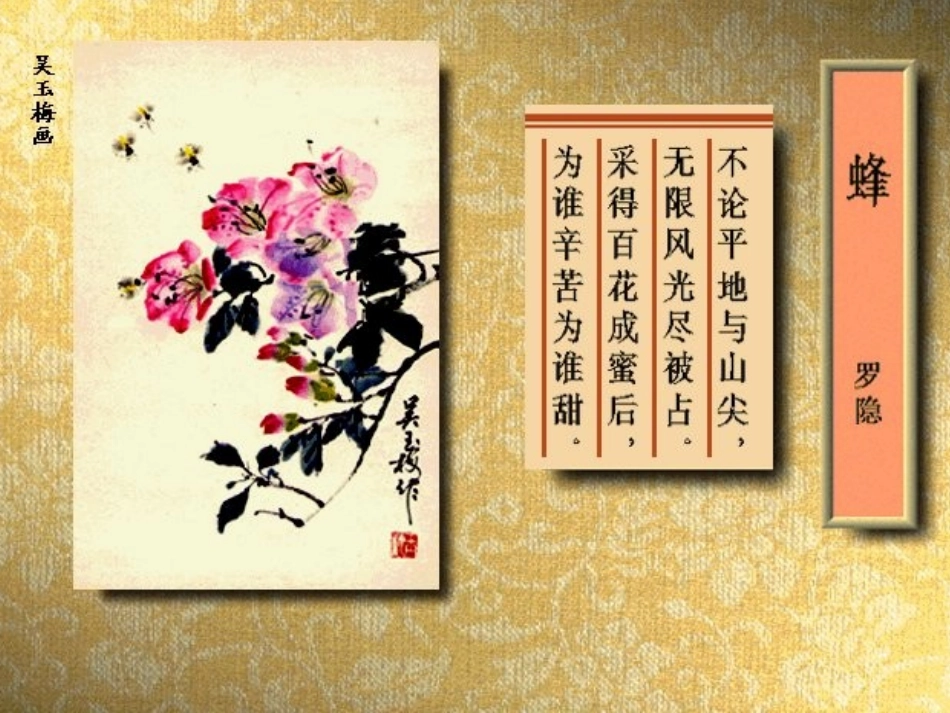 蜂
罗隐
不论平地与山尖，
无限风光尽被占。
采得百花成蜜后，
为谁辛苦为谁甜。
吴玉梅作
吴玉梅画